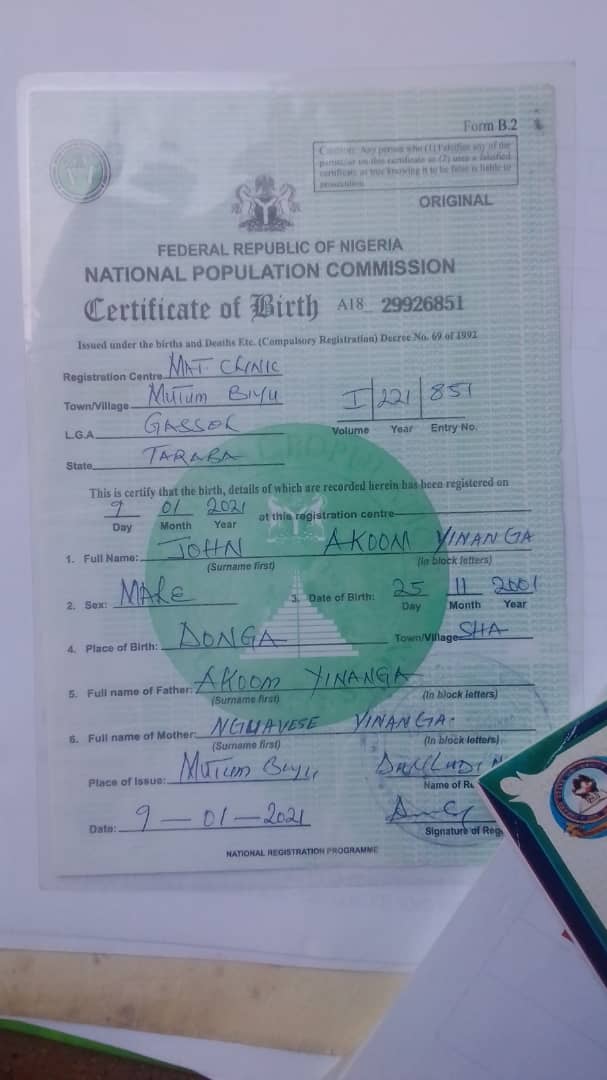 Form B.2
Caution: Any person who (1) Falsifies any of the
particular on this certificate or (2) uses a falsified
certificate as true knowing it to be false is liable to
prosecution
ORIGINAL
FEDERAL REPUBLIC OF NIGERIA
NATIONAL POPULATION COMMISSION
Certificate of Birth A18 29926851
Issued under the births and Deaths Etc. (Compulsory Registration) Decree No. 69 of 1992
Registration Centre MAT. CLINIC
Town/Village MUTUM BIYU
I 221 851
Volume Year Entry No.
L.G.A. GASSOL
State TARABA
This is certify that the birth, details of which are recorded herein has been registered on
9 01 2021 at this registration centre
Day Month Year
1. Full Name: JOHN AKOOM YINANGA
(Surname first) (In block letters)
2. Sex: MALE 3. Date of Birth: 25 11 2001
Day Month Year
4. Place of Birth: DONGA Town/Village SHA
5. Full name of Father: AKOOM YINANGA
(Surname first) (In block letters)
6. Full name of Mother: NGUAVESE YINANGA
(Surname first) (In block letters)
Place of Issue: Mutum Biyu
Name of
Date: 9-01-2021
Signature of Reg
NATIONAL REGISTRATION PROGRAMME